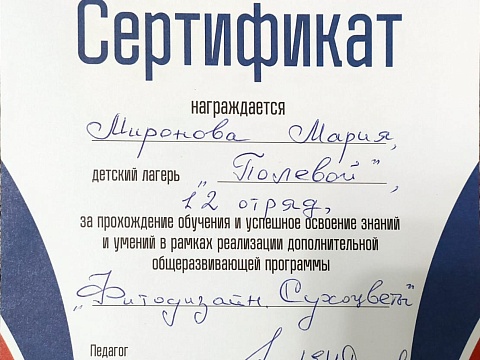 Сертификат
награждается
Миронова Мария,
детский лагерь „Полевой",
12 отряд,
за прохождение обучения и успешное освоение знаний
и умений в рамках реализации дополнительной
общеразвивающей программы
„Фитодизайн. Сухоцветы"
Педагог